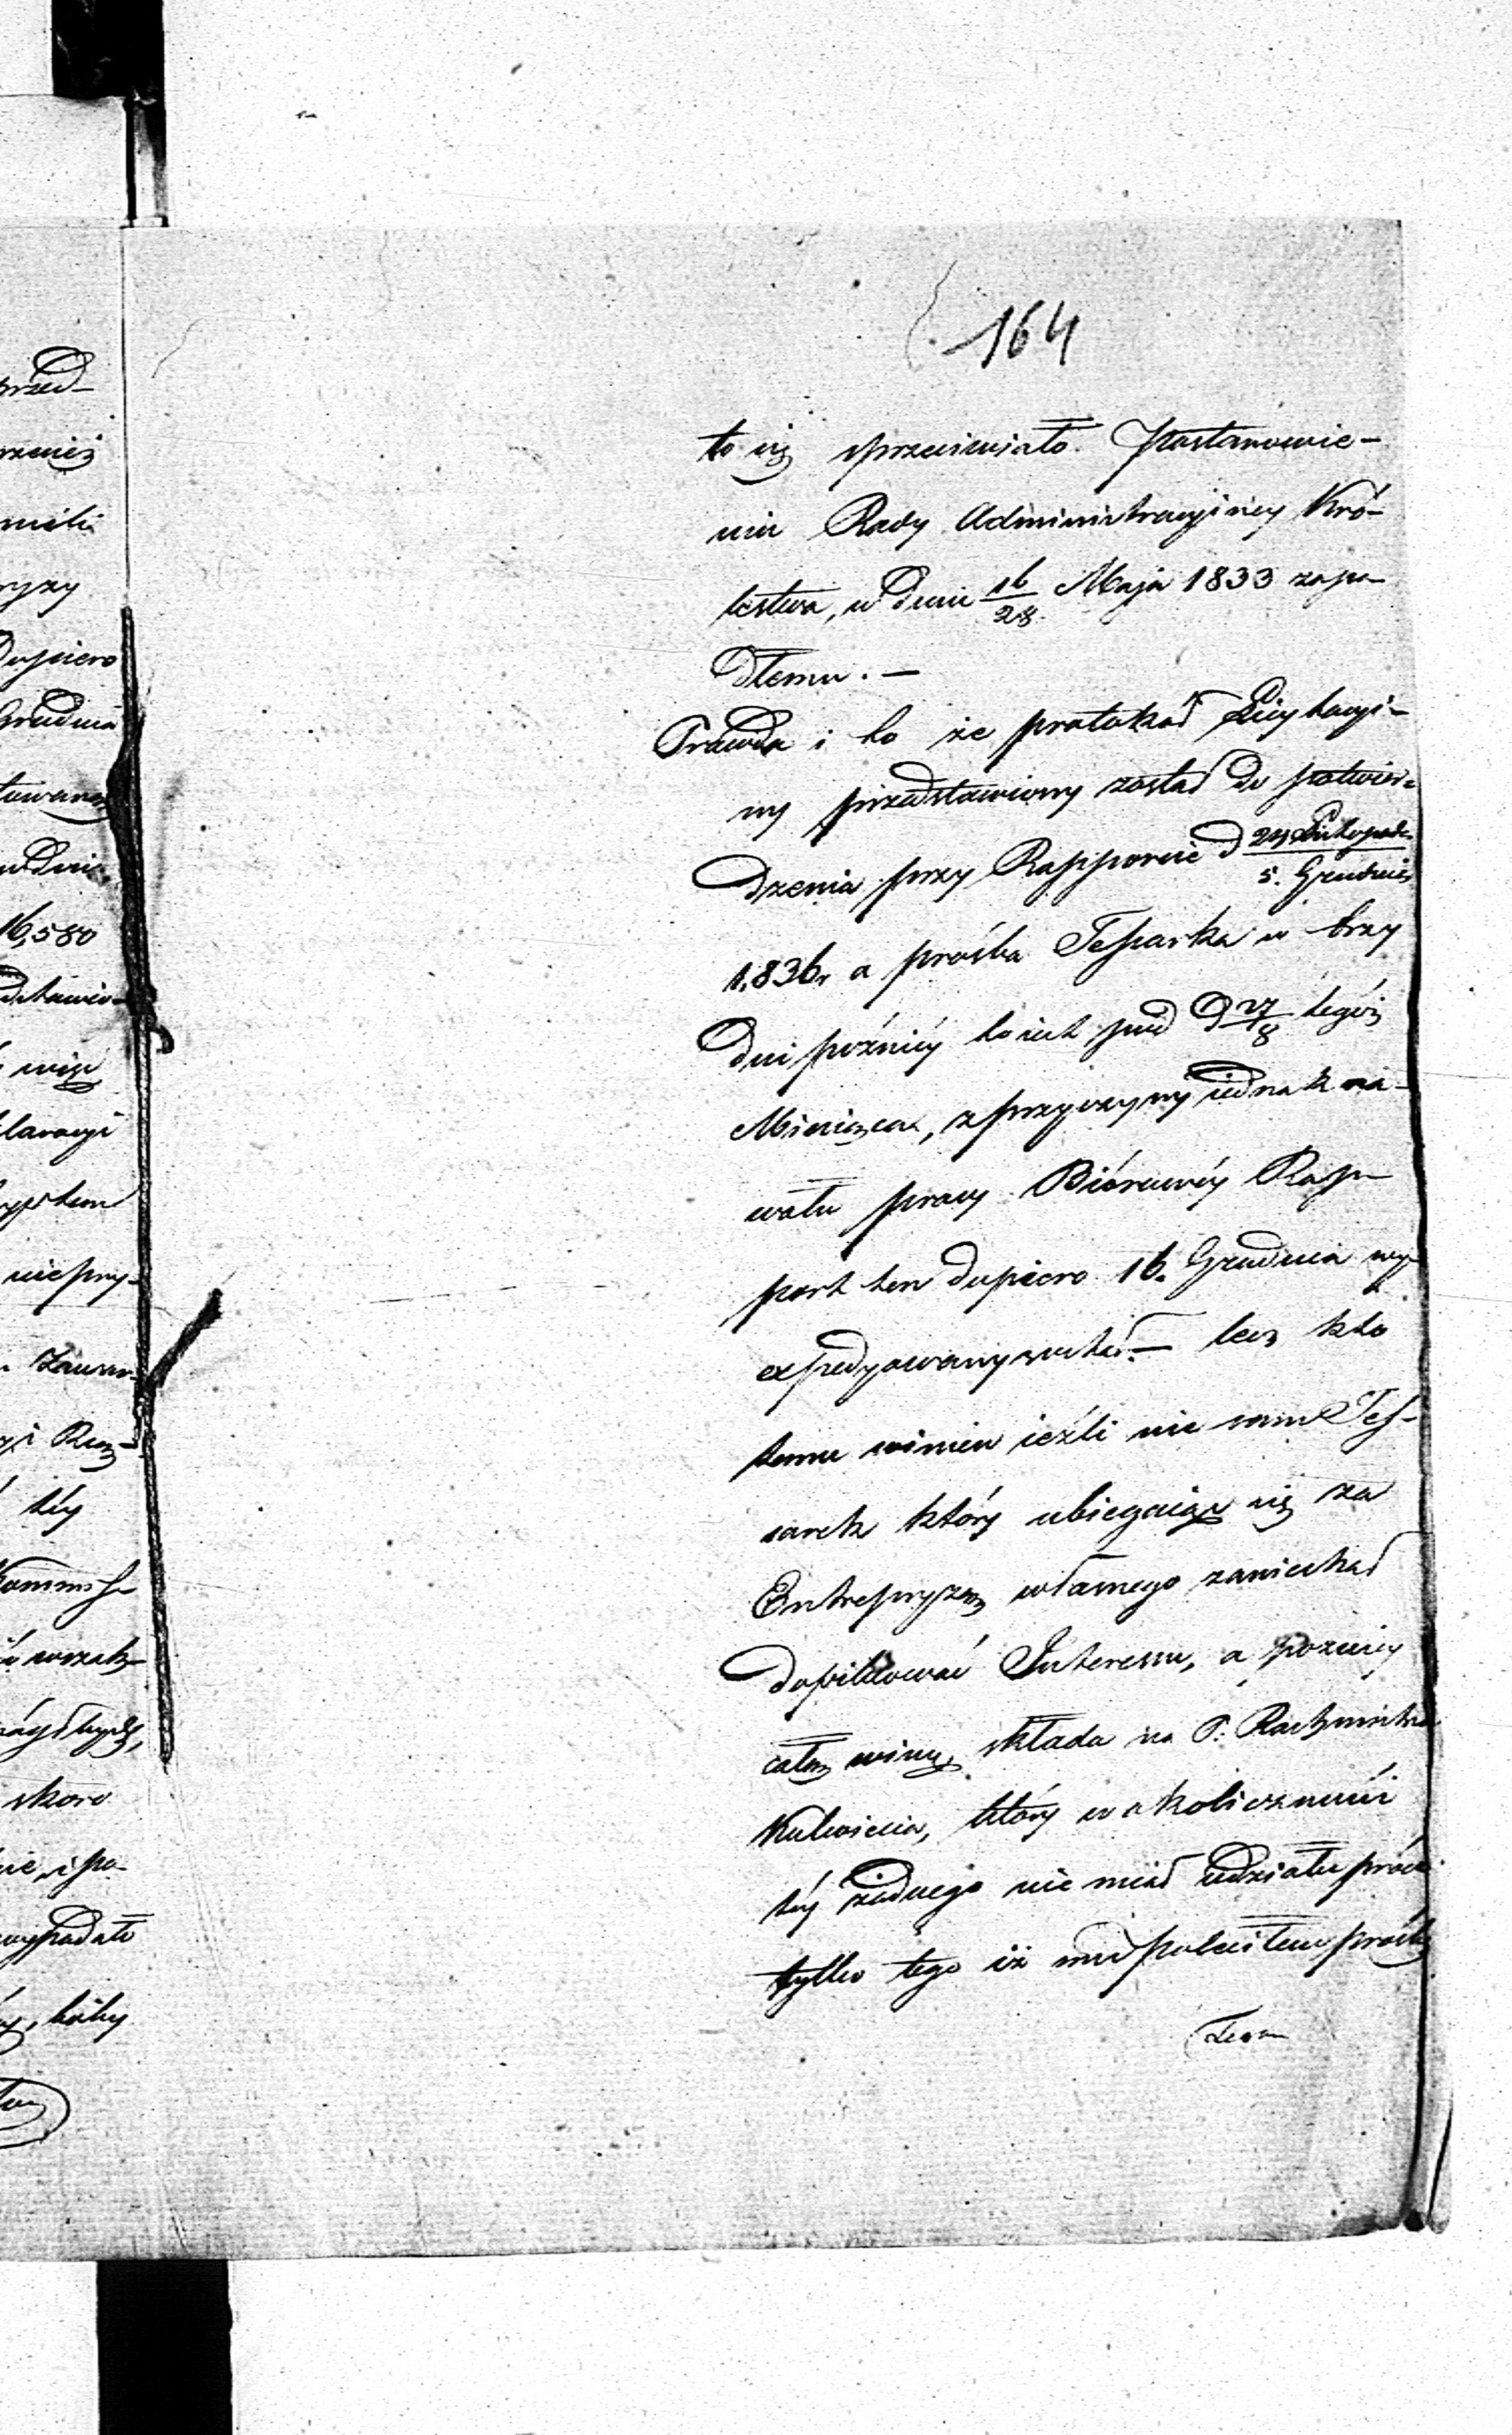 164
to się sprzeciwiało Postanowie-
niu Rady Administracyiney Kró-
lestwa, w dniu 16/28 Maja 1833 zapa-
dłemu. —
Prawda i to że protokół Licytacyi-
ny przedstawiony został do potwier-
dzenia przy Rapporcie d 24 Listopada / 5. Grudnia
1836r a prośba Tessarka w trzy
dni późniéy to iest pod d 27/8 tegóż
Miesiąca, z przyczyny iednak na-
wału pracy Biórowéy Rap-
port ten dopiero 16. Grudnia wy-
expedyowany został. — lecz kto
temu winien ieźli nie sam Tes-
sarek który ubiegaiąc się za
Entrepryzą własnego zaniechał
dopilnować Interessu, a poźniey
całą winę składa na P.
który w okoliczności
téy żadnego nie miał udziału prócz
tylko tego iż mu poleciłem prośbę
przed-
dopiero
Grudnia
w dniu
16,580
więc
laracyi
nieprzy-
téy
skoro
wypadało